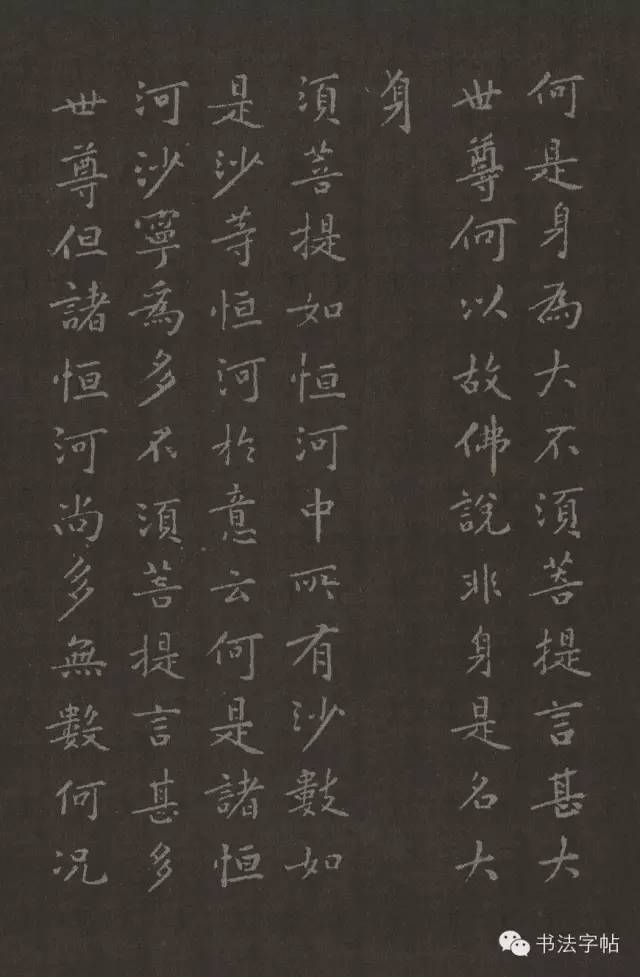 何是身為大不須菩提言甚大
世尊何以故佛說非身是名大
身
須菩提如恒河中所有沙數如
是沙等恒河於意云何是諸恒
河沙寧為多不須菩提言甚多
世尊但諸恒河尚多無數何况
书法字帖